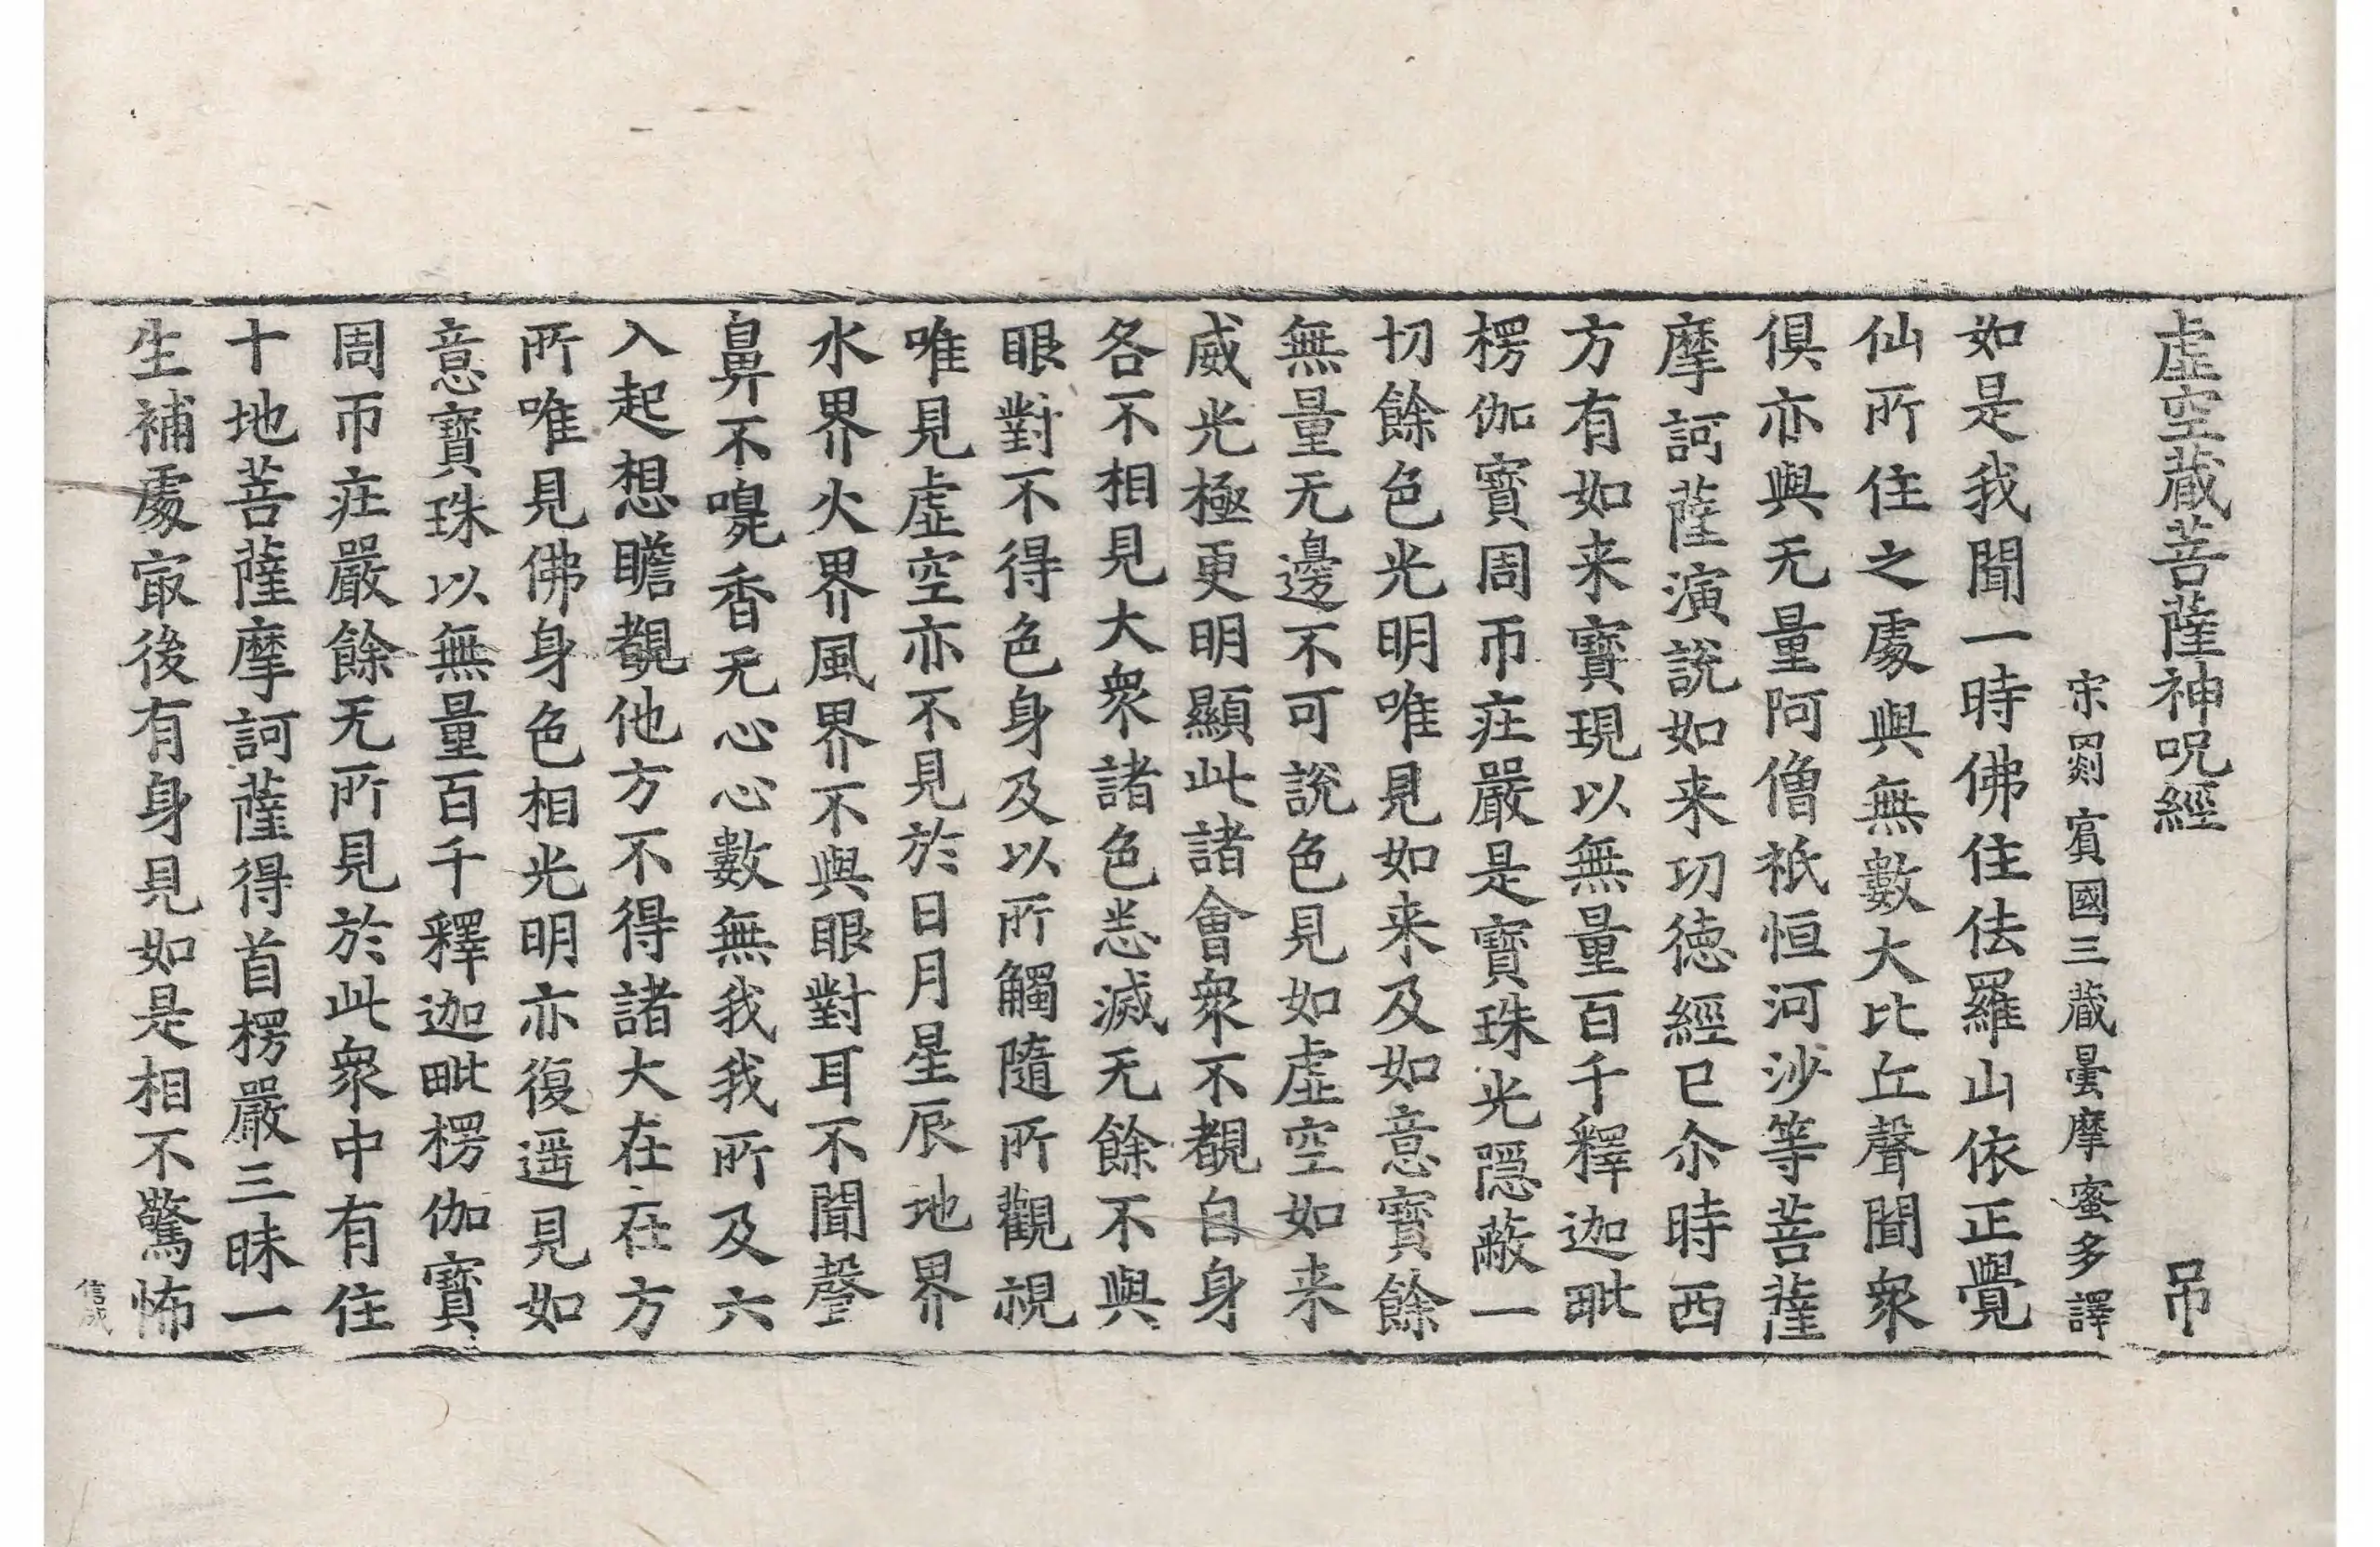 虛空蔵菩薩神呪經 吊
宋罽賔國三蔵曇摩蜜多譯
如是我聞一時佛住佉羅山依正覺
仙所住之處與無數大比丘聲聞衆
俱亦與无量阿僧祇恒河沙等菩薩
摩訶薩演說如来功德經已尒時西
方有如来寶現以無量百千釋迦毗
楞伽寶周帀庄嚴是寶珠光隠蔽一
切餘色光明唯見如来及如意寶餘
無量无邊不可說色見如虛空如来
威光極更明顯此諸會衆不覩自身
各不相見大衆諸色悉滅无餘不與
眼對不得色身及以所觸隨所觀視
唯見虛空亦不見於日月星辰地界
水界火界風界不與眼對耳不聞聲
鼻不嗅香无心心數無我我所及六
入起想瞻覩他方不得諸大在在方
所唯見佛身色相光明亦復遥見如
意寶珠以無量百千釋迦毗楞伽寶
周帀庄嚴餘无所見於此衆中有住
十地菩薩摩訶薩得首楞嚴三昧一
生補處冣後有身見如是相不驚怖
信成